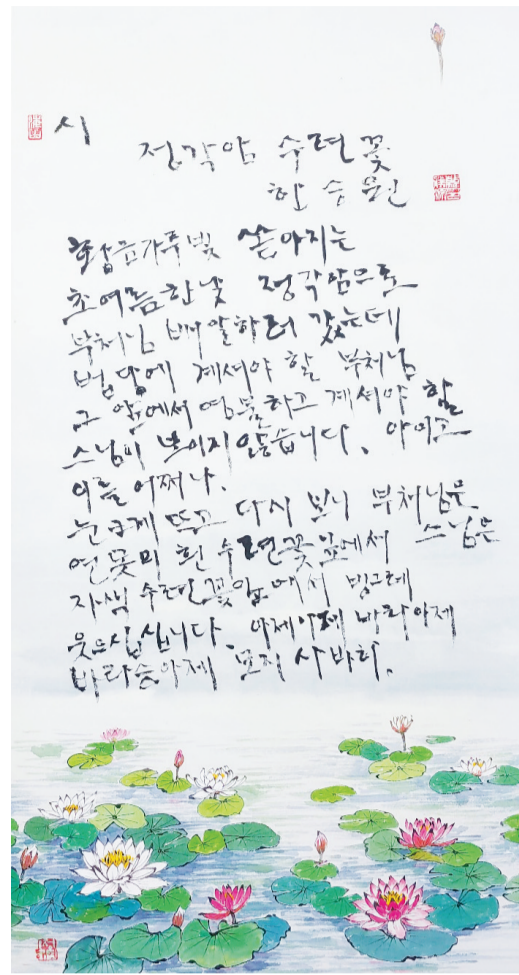 시
정각암 수련꽃
한승원
황금가루빛 쏟아지는
초여름 한낮 정각암으로
부처님 배알하러 갔는데
법당에 계셔야 할 부처님
그 앞에서 염불하고 계셔야 할
스님이 보이지 않습니다. 아이고
이를 어쩌나.
눈 크게 뜨고 다시 보니 부처님은
연못의 흰 수련꽃 앞에서 스님은
자색 수련꽃 앞에서 빙그레
웃으십니다. 아제아제 바라아제
바라승아제 모지 사바하.